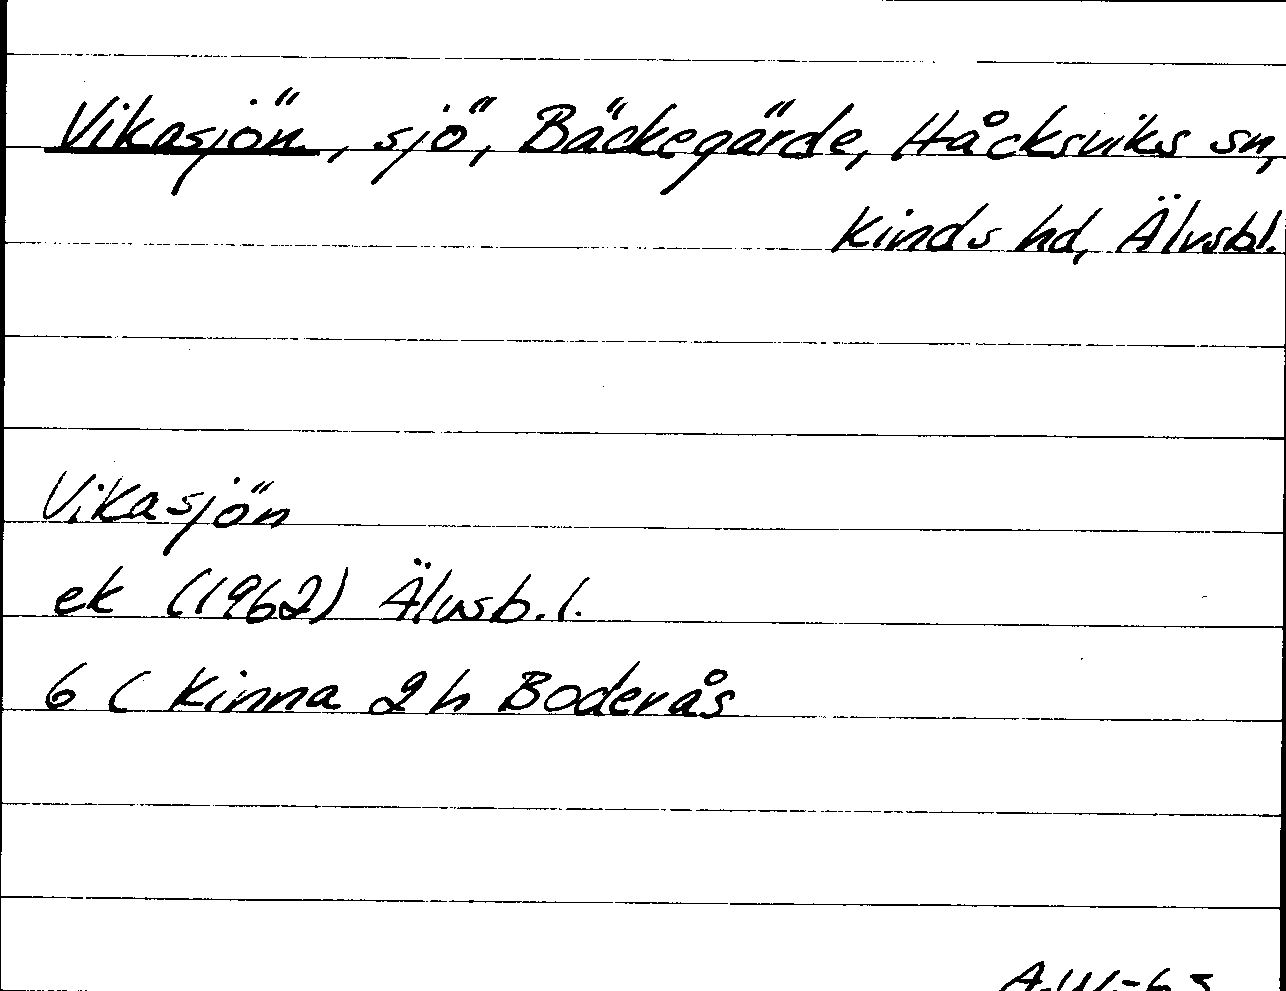 Vikasjön, sjö, Bäckegärde, Håcksviks sn,
Kinds hd, Älvsbl.
Vikasjön
ek (1962) Älvsb.l.
6 C Kinna 2 h Boderås
A.W.-63